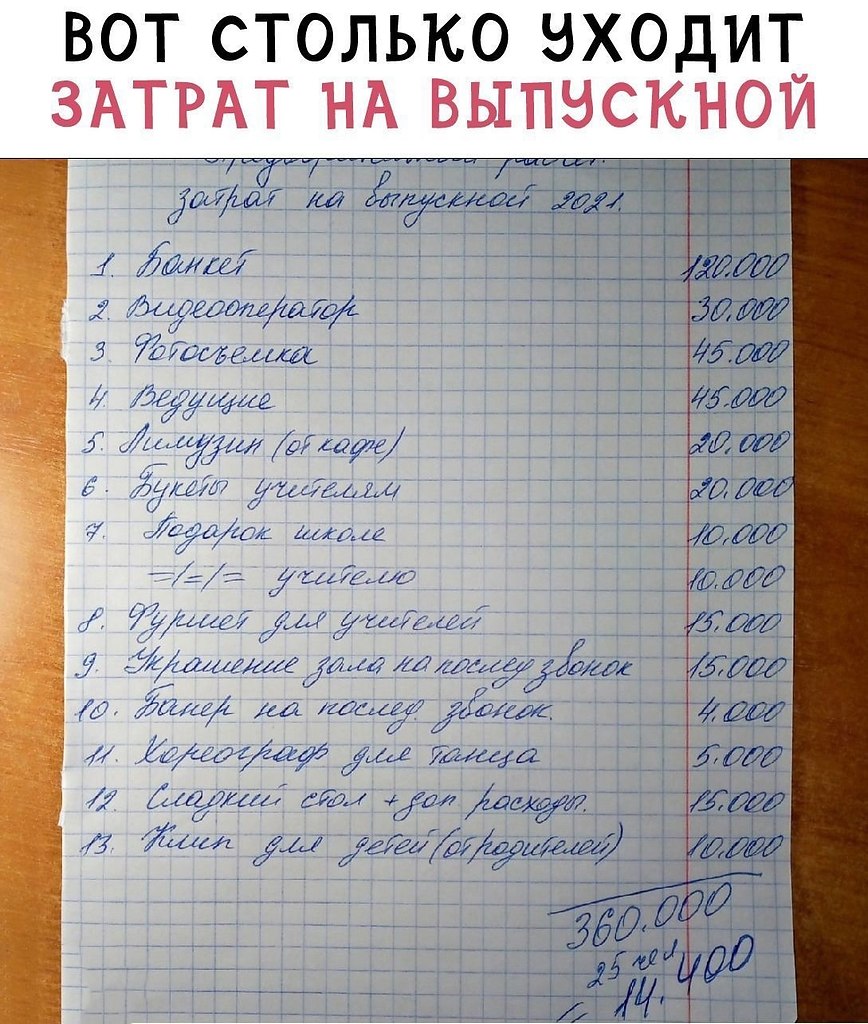 ВОТ СТОЛЬКО УХОДИТ
ЗАТРАТ НА ВЫПУСКНОЙ
затрат на выпускной 2021.
1. Банкет 120.000
2. Видеооператор 30.000
3. Фотосъемка 45.000
4. Ведущие 45.000
5. Лимузин (от кафе) 20.000
6. Букеты учителям 20.000
7. Подарок школе 10.000
=/=/= учителю 10.000
8. Фуршет для учителей 15.000
9. Украшение зала на послед звонок 15.000
10. Банер на послед. звонок. 4.000
11. Хореограф для танца 5.000
12. Сладкий стол + доп расходы. 15.000
13. Клип для детей (от родителей) 10.000
360.000
25 чел
= 14.400